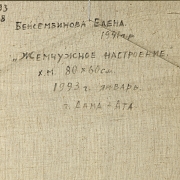 93
8
Бенсембинова Елена
1971 г.р.
"Жемчужное настроение"
х.м. 80×60 см.
1993 г. январь
г. Алма-Ата